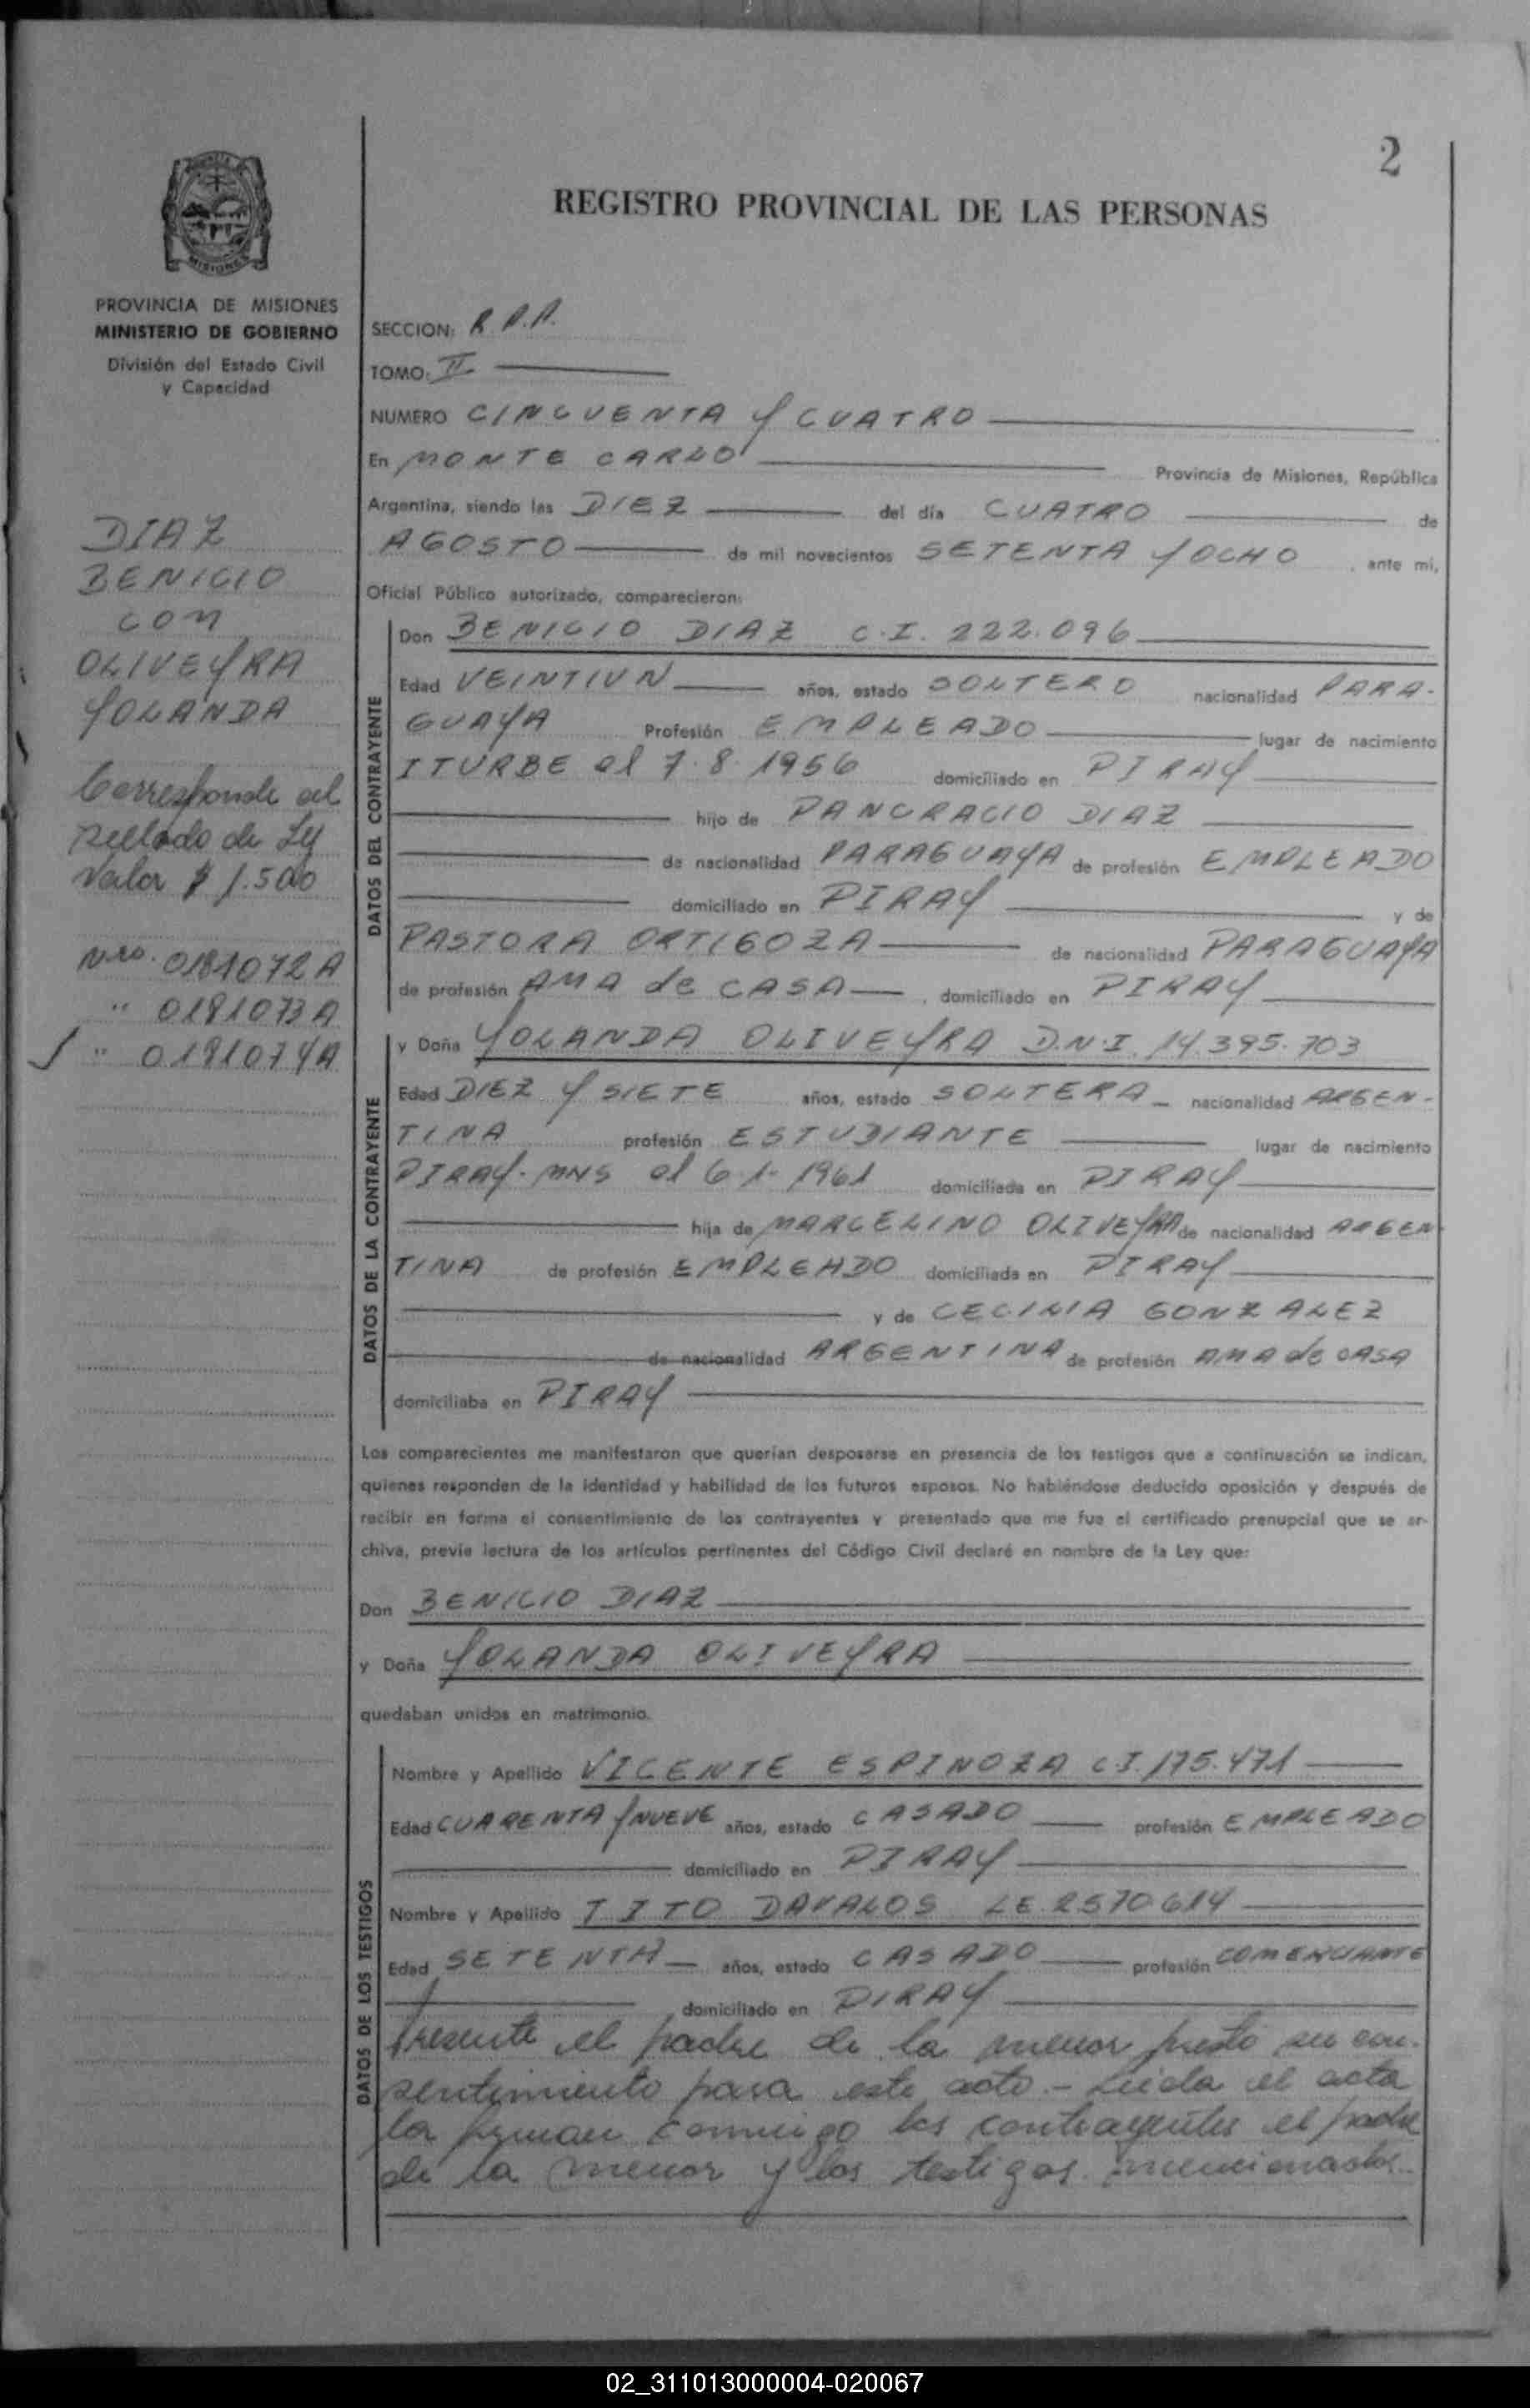 2
REGISTRO PROVINCIAL DE LAS PERSONAS
MISIONES
PROVINCIA DE MISIONES
MINISTERIO DE GOBIERNO
División del Estado Civil
y Capacidad
DIAZ
BENICIO
con
OLIVEYRA
YOLANDA
Corresponde al
sellado de Ley
Valor $ 1.500
Nro. 0181072A
" 0181073A
" 0181074A
SECCION: R.P.P.
TOMO: II
NUMERO CINCUENTA Y CUATRO
En MONTE CARLO Provincia de Misiones, República
Argentina, siendo las DIEZ del día CUATRO de
AGOSTO de mil novecientos SETENTA Y OCHO, ante mi,
Oficial Público autorizado, comparecieron:
DATOS DEL CONTRAYENTE
Don BENICIO DIAZ C.I. 222.096
Edad VEINTIUN años, estado SOLTERO nacionalidad PARA-
GUAYA Profesión EMPLEADO lugar de nacimiento
ITURBE el 7.8.1956 domiciliado en PIRAY
hijo de PANCRACIO DIAZ
de nacionalidad PARAGUAYA de profesión EMPLEADO
domiciliado en PIRAY y de
PASTORA ORTIGOZA de nacionalidad PARAGUAYA
de profesión AMA de CASA, domiciliado en PIRAY
DATOS DE LA CONTRAYENTE
y Doña YOLANDA OLIVEYRA D.N.I. 14.395.703
Edad DIEZ Y SIETE años, estado SOLTERA nacionalidad ARGEN-
TINA profesión ESTUDIANTE lugar de nacimiento
PIRAY-MNS el 6-1-1961 domiciliada en PIRAY
hija de MARCELINO OLIVEYRA de nacionalidad ARGEN
TINA de profesión EMPLEADO domiciliada en PIRAY
y de CECILIA GONZALEZ
de nacionalidad ARGENTINA de profesión AMA de CASA
domiciliaba en PIRAY
Los comparecientes me manifestaron que querían desposarse en presencia de los testigos que a continuación se indican,
quienes responden de la identidad y habilidad de los futuros esposos. No habiéndose deducido oposición y después de
recibir en forma el consentimiento de los contrayentes y presentado que me fue el certificado prenupcial que se ar-
chiva, previa lectura de los artículos pertinentes del Código Civil declaré en nombre de la Ley que:
Don BENICIO DIAZ
y Doña YOLANDA OLIVEYRA
quedaban unidos en matrimonio.
DATOS DE LOS TESTIGOS
Nombre y Apellido VICENTE ESPINOZA C.I. 175.471
Edad CUARENTA Y NUEVE años, estado CASADO profesión EMPLEADO
domiciliado en PIRAY
Nombre y Apellido TITO DAVALOS LE. 2570614
Edad SETENTA años, estado CASADO profesión COMERCIANTE
domiciliado en PIRAY
Presente el padre de la menor prestó su con-
sentimiento para este acto.- Leida el acta
la firman conmigo los contrayentes el padre
de la menor y los testigos mencionados.
02_311013000004-020067